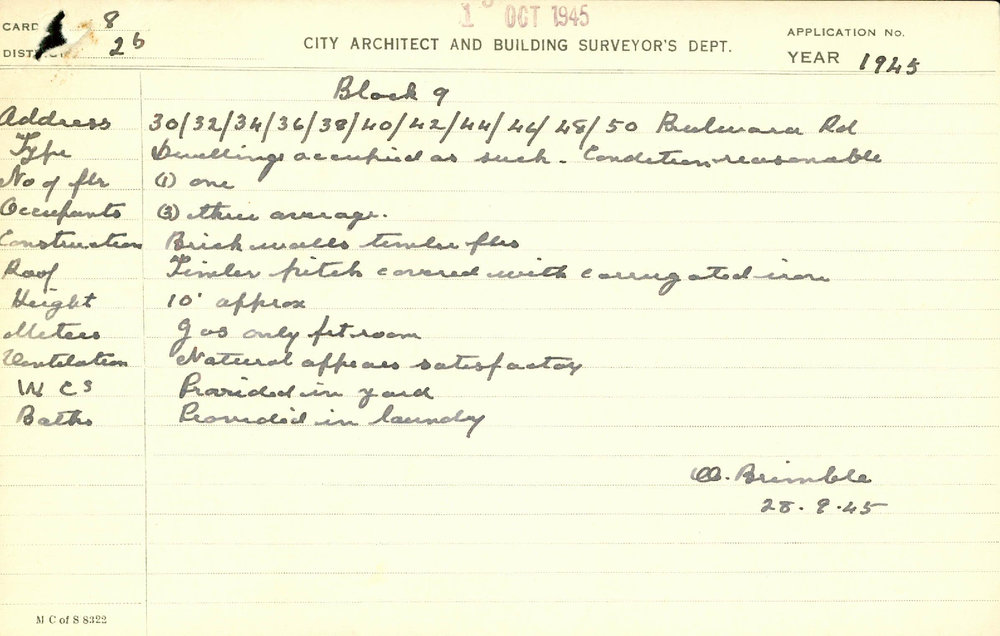 CARD 8
1 OCT 1945
APPLICATION No.
2b
CITY ARCHITECT AND BUILDING SURVEYOR'S DEPT.
YEAR 1945
Block 9
Address 30/32/34/36/38/40/42/44/46/48/50 Bulwara Rd
Type Dwellings occupied as such - Condition reasonable
No of flr (1) one
Occupants (3) three average.
Construction Brick walls timber flrs
Roof Timber pitch covered with corrugated iron
Height 10' approx
Meters Gas only frt room
Ventilation Natural appears satisfactory
W Cs Provided in yard
Baths Provided in laundry
Brimble
28.9.45
M C of S 8322